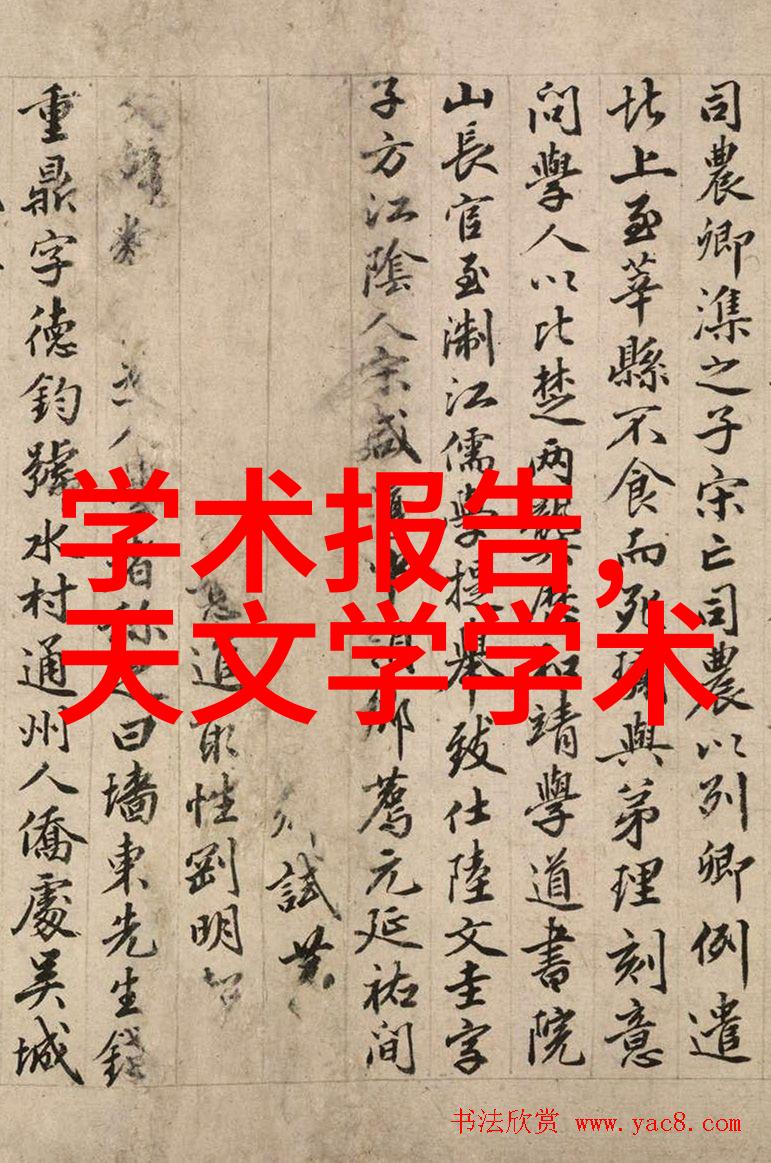 司農卿潗之子宋亡司農以列卿例遣
北上至莘縣不食而死璛與弟理刻意
問學人以比楚两龔歷和靖學道書院
山長官至浙江儒學提舉致仕陸文圭字
子方江陰人宋咸鄉薦元延祐间
試
追求性劉明
人曰墻東先生錢
重鼎字德鈞號水村通州人僑處吴城
学术报告,
天文学学术
书法欣赏 www.yac8.com